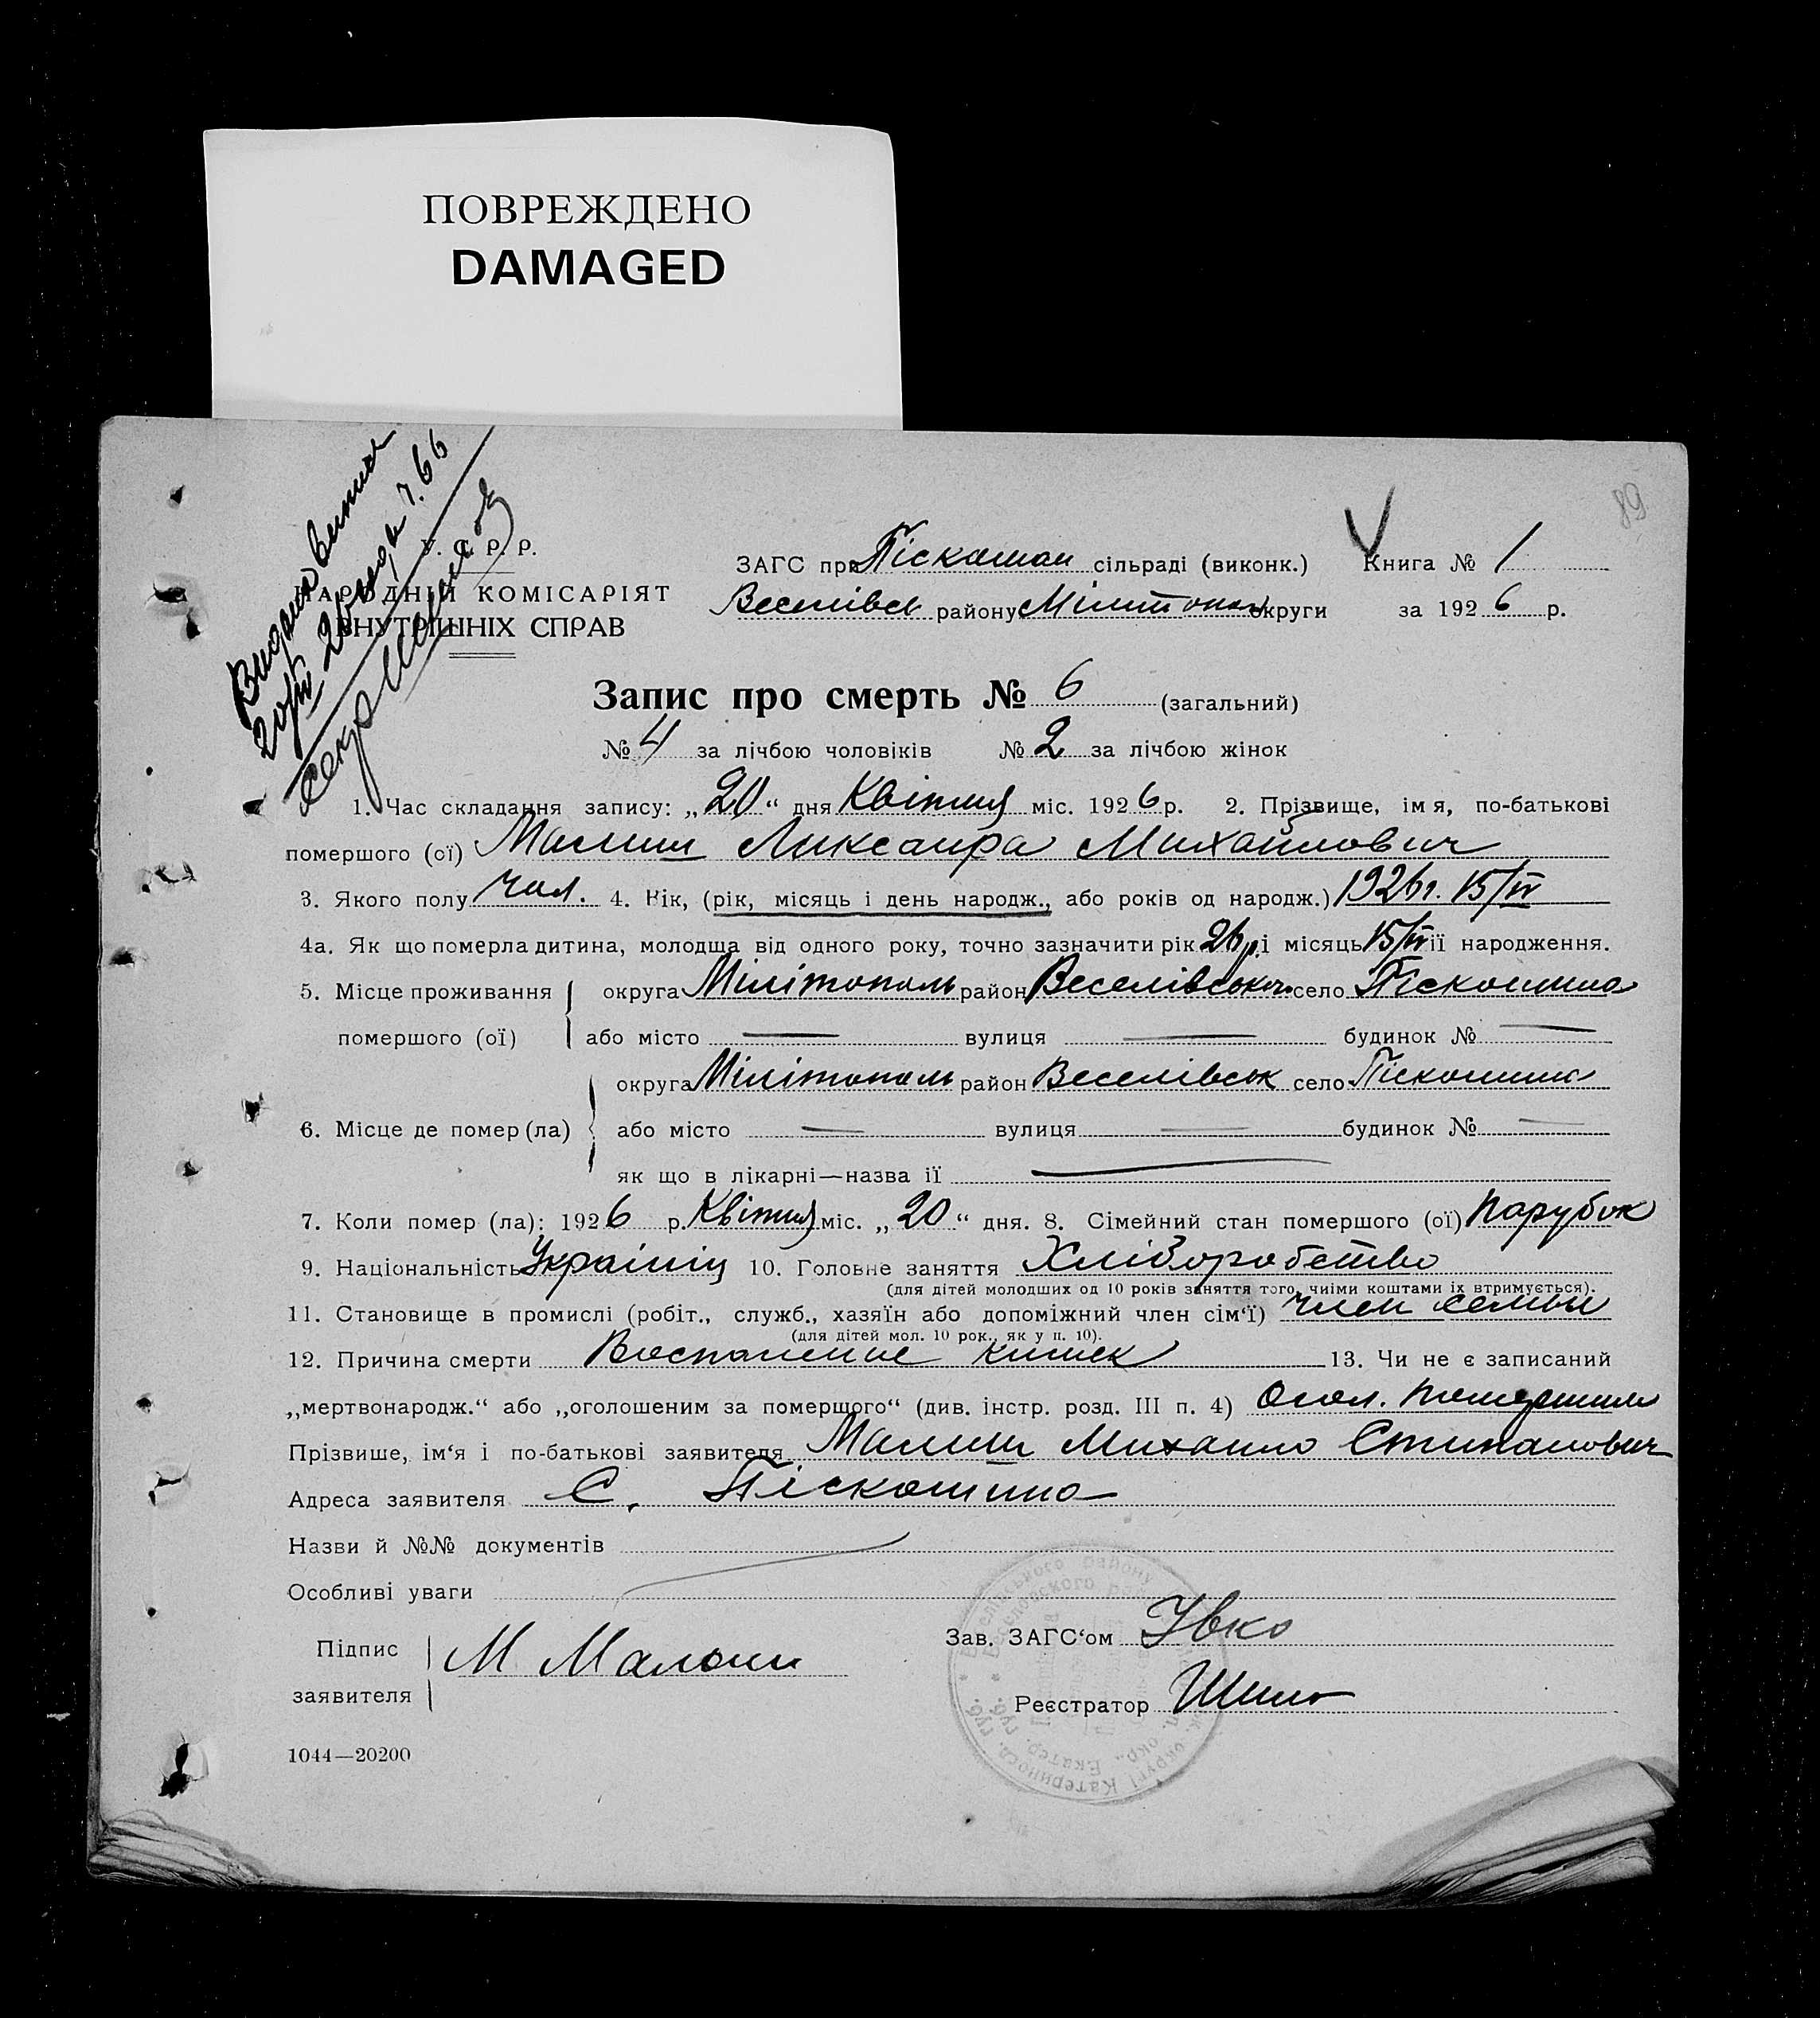 ПОВРЕЖДЕНО
DAMAGED
89
Видано витяг
У. С. Р. Р.
НАРОДНІЙ КОМІСАРІЯТ
ВНУТРІШНІХ СПРАВ
ЗАГС при Піскошан сільраді (виконк.) Книга № 1
Веселівськ району Мілітопол округи за 1926 р.
Запис про смерть № 6 (загальний)
№ 4 за лічбою чоловіків № 2 за лічбою жінок
1. Час складання запису: „20“ дня Квітня міс. 1926 р. 2. Прізвище, ім я, по-батькові
помершого (ої) Малиш Ликсандра Михайлович
3. Якого полу чол. 4. Вік, (рік, місяць і день народж., або років од народж.) 1926 г. 15/IV
4а. Як що померла дитина, молодша від одного року, точно зазначити рік 26 р. і місяць 15/IV її народження.
5. Місце проживання округа Мілітополь район Веселівськ село Піскошино
помершого (ої) або місто — вулиця — будинок № —
округа Мілітополь район Веселівськ село Піскошино
6. Місце де помер (ла) або місто — вулиця — будинок № —
як що в лікарні—назва її —
7. Коли помер (ла): 1926 р. Квітня міс. „20“ дня. 8. Сімейний стан помершого (ої) парубок
9. Національність Українц 10. Головне заняття Хліборобство
(для дітей молодших од 10 років заняття того, чиїми коштами їх втримується).
11. Становище в промислі (робіт., служб., хазяїн або допоміжний член сім‘ї) член семьи
(для дітей мол. 10 рок., як у п. 10).
12. Причина смерти Воспаление кишек 13. Чи не є записаний
„мертвонародж.“ або „оголошеним за померщого“ (див. інстр. розд. III п. 4) Огол. помершим
Прізвише, ім‘я і по-батькові заявителя Малиш Михаило Стипанович
Адреса заявителя С. Піскошино
Назви й №№ документів
Особливі уваги
Підпис
заявителя М Малыш
Зав. ЗАГС‘ом
Реєстратор Шило
1044—20200